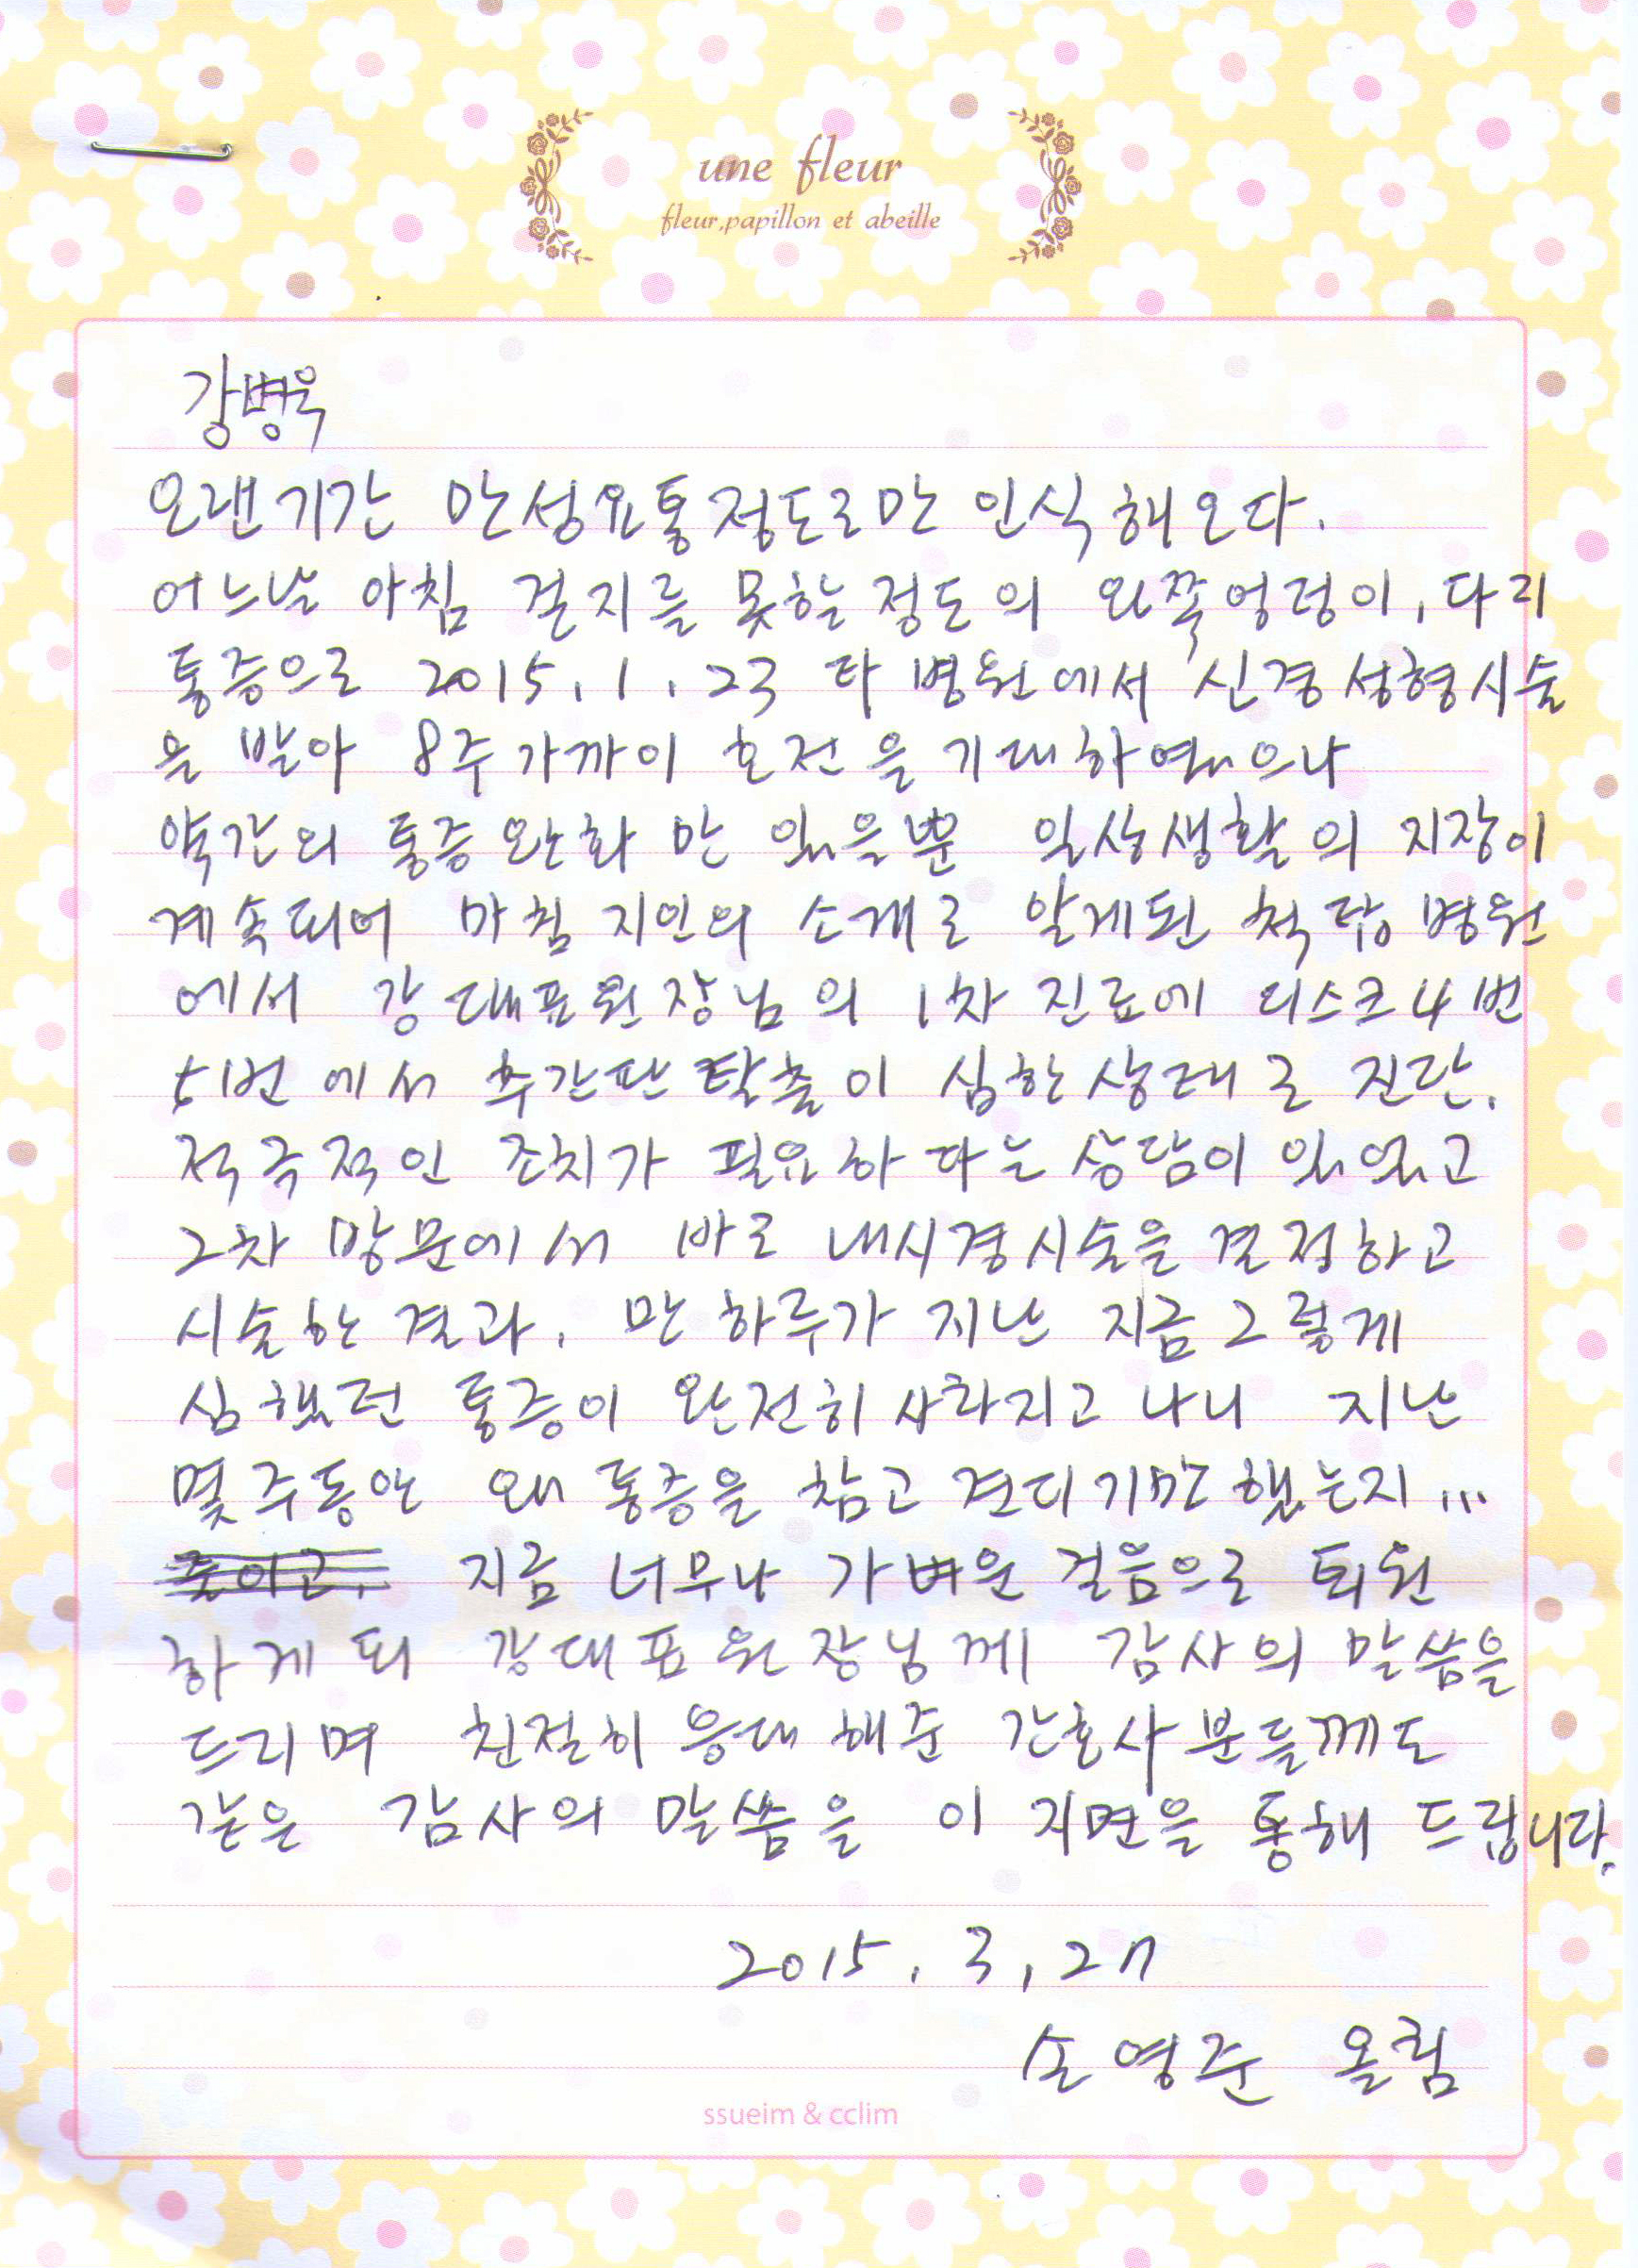 une fleur
fleur,papillon et abeille
강병욱
오랜기간 만성요통정도로만 인식해오다.
어느날 아침 걷지를 못할정도의 왼쪽엉덩이, 다리
통증으로 2015. 1. 23 타 병원에서 신경성형시술
을 받아 8주가까이 호전을 기대하였으나
약간의 통증완화 만 있을뿐 일상생활의 지장이
계속되어 마침 지인의 소개로 알게된 척탑병원
에서 강대표원장님의 1차 진료에 디스크4번
5번에서 추간판 탈출이 심한상태로 진단.
적극적인 조치가 필요하다는 상담이 있었고
2차 방문에서 바로 내시경시술을 결정하고
시술한 결과, 만 하루가 지난 지금 그렇게
심했던 통증이 완전히 사라지고 나니 지난
몇주동안 왜 통증을 참고 견디기만 했는지...
지금 너무나 가벼운 걸음으로 퇴원
하게 되 강대표원장님께 감사의 말씀을
드리며 친절히 응대해준 간호사분들께도
같은 감사의 말씀을 이 지면을 통해 드립니다.
2015. 3. 27
손영준 올림
ssueim & cclim